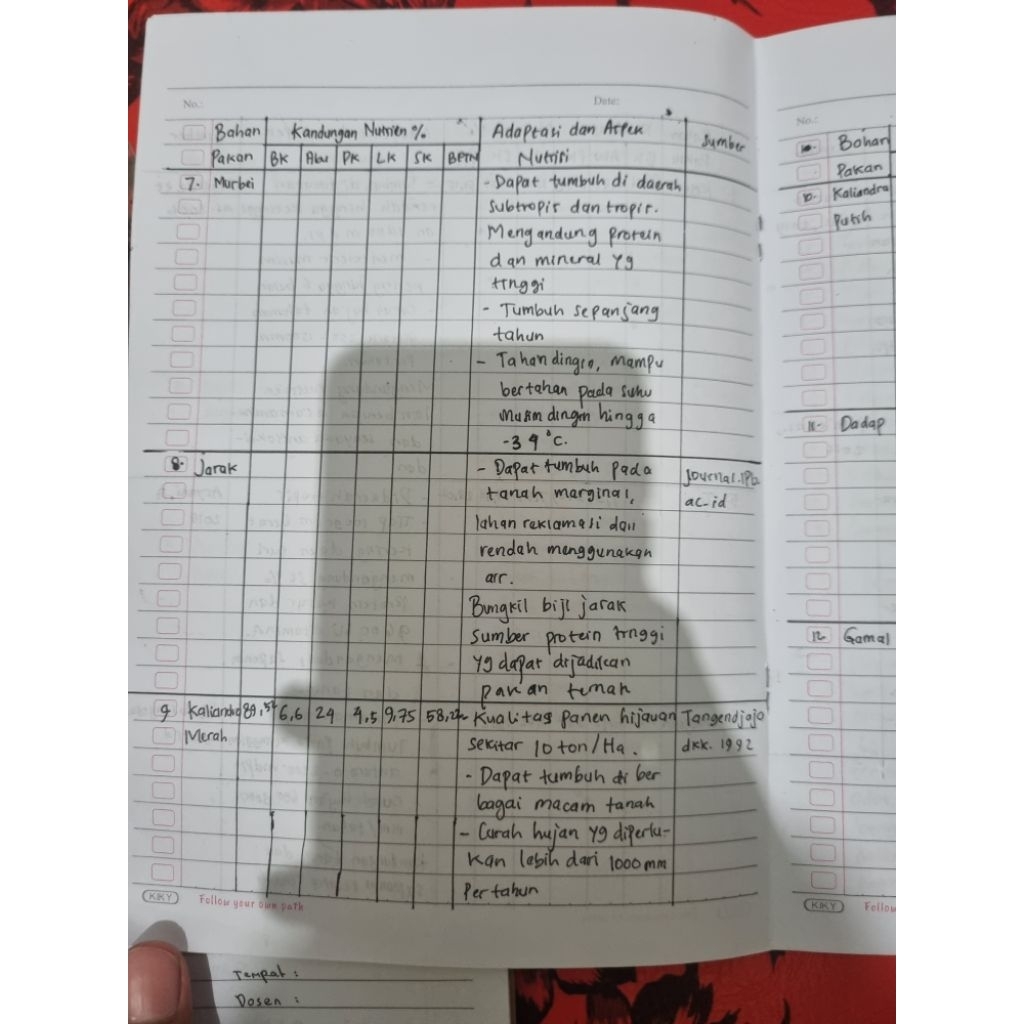 No.:
Date:
Bahan Kandungan Nutrien % Adaptasi dan Aspek Sumber
Pakan BK Abu PK LK SK BPTN Nutrisi
7. Murbei - Dapat tumbuh di daerah
Subtropis dan tropis.
Mengandung protein
dan mineral yg
tinggi
- Tumbuh sepanjang
tahun
- Tahan dingin, mampu
bertahan pada suhu
musim dingin hingga
-34 °C.
8. Jarak - Dapat tumbuh pada Journal.IPb
tanah marginal, ac.id
lahan reklamasi dan
rendah menggunakan
air.
Bungkil biji jarak
Sumber protein tinggi
yg dapat dijadikan
pakan ternak
9 Kaliandra 89,52 6,6 24 4,5 9,75 58,22 - Kualitas panen hijauan Tangendjojo
Merah sekitar 10 ton/Ha. dkk. 1992
- Dapat tumbuh di ber
bagai macam tanah
- Curah hujan yg diperlu-
kan lebih dari 1000 mm
Per tahun
KIKY Follow your own path
No.:
Bahan
Pakan
10. Kaliandra
Putih
11. Dadap
12. Gamal
KIKY Follow
Tempat :
Dosen :